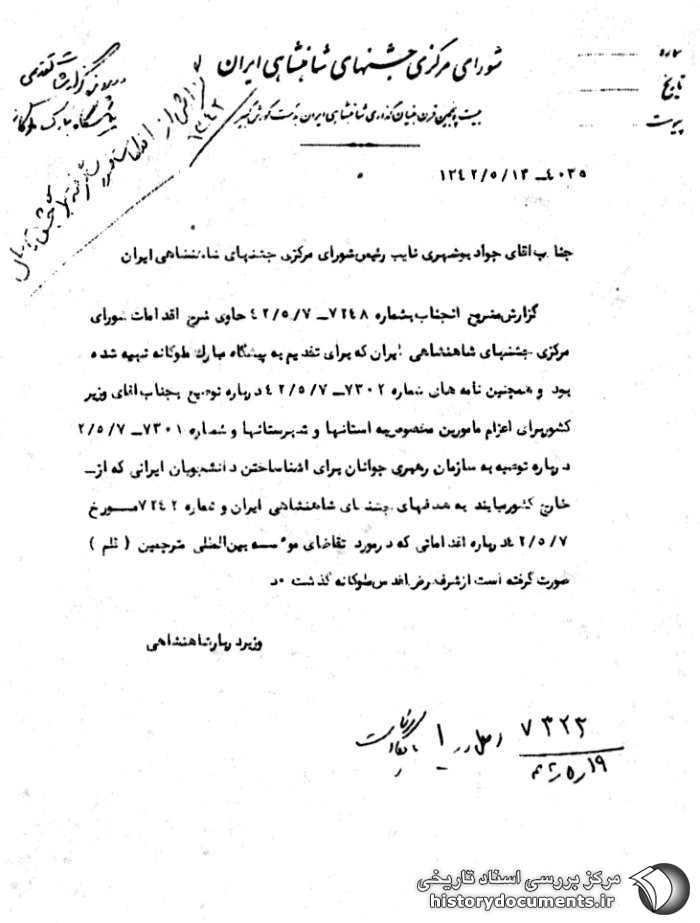 شماره
تاریخ
پیوست
شورای مرکزی جشنهای شاهنشاهی ایران
بیست و پنجمین قرن بنیان گذاری شاهنشاهی ایران بدست کورش کبیر
گزارشات تقدیمی
پیشگاه مبارک ملوکانه
گزارش از
۱۳۴۲
۴۰۳۵ــ ۱۳۴۲/۵/۱۳
جناب اقای جواد بوشهری نایب رئیس شورای مرکزی جشنهای شاهنشاهی ایران
گزارش مشروح انجناب بشماره ۷۲۴۸ــ ۴۲/۵/۷ حاوی شرح اقدامات شورای
مرکزی جشنهای شاهنشاهی ایران که برای تقدیم به پیشگاه مبارک ملوکانه تهیه شده
بود و همچنین نامه های شماره ۷۳۰۲ــ ۴۲/۵/۷ درباره توصیه بجناب اقای وزیر
کشور برای اعزام مامورین مخصوص به استانها و شهرستانها و شماره ۷۳۰۱ــ ۲/۵/۷
درباره توصیه به سازمان رهبری جوانان برای اشنا ساختن دانشجویان ایرانی که از ــ
خارج کشور میایند به هدفهای جشنهای شاهنشاهی ایران و شماره ۷۲۴۲ مورخ
۴۲/۵/۷ درباره اقداماتی که در مورد تقاضای موسسه بین المللی مترجمین ( )
صورت گرفته است از شرف عرض اقدس ملوکانه گذشت
وزیر دربار شاهنشاهی
۷۳۲۳
بایگانی است
مرکز بررسی اسناد تاریخی
historydocuments.ir